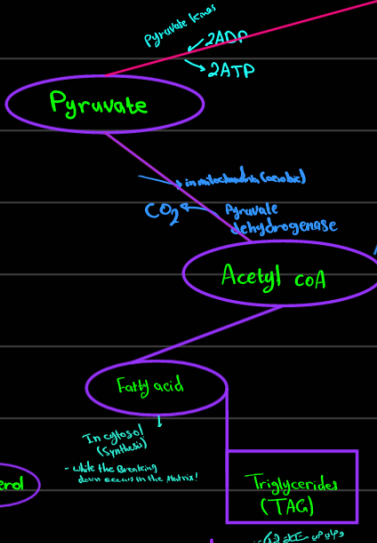 Pyruvate kinas
2ADP
2ATP
Pyruvate
in mitochondria (aerobic)
CO2
Pyruvate
dehydrogenase
Acetyl CoA
Fatty acid
In cytosol
(Synthesis)
- while the Breaking
down occurs in the Matrix!
erol
Triglycerides
(TAG)